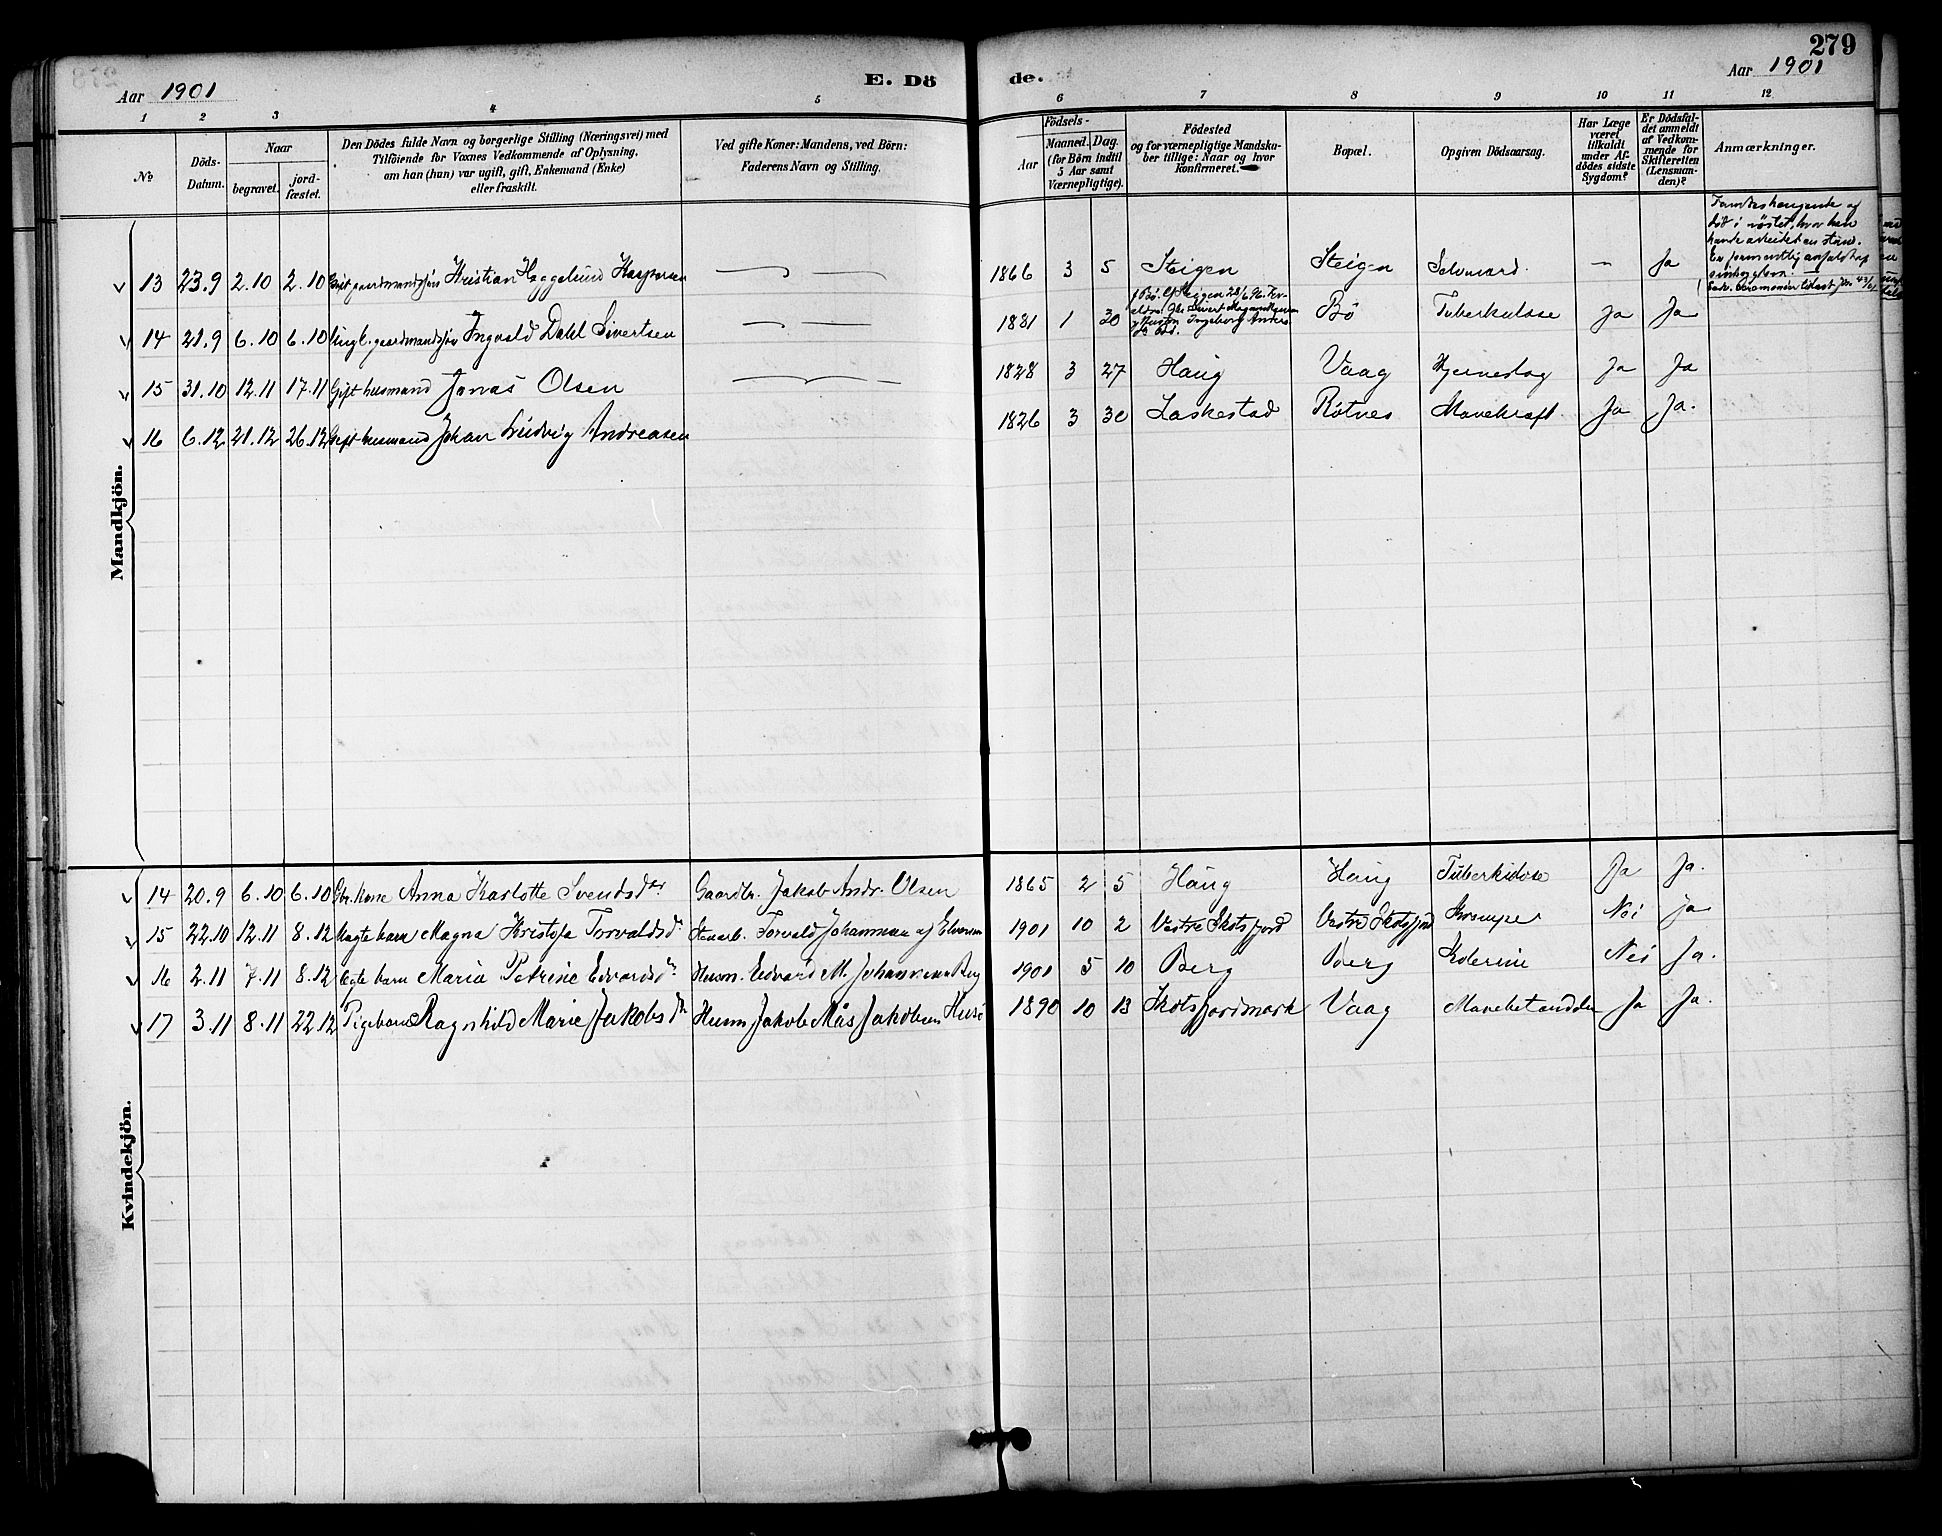 279
Aar 1901
E. Dö
de.
Aar 1901
1 2 3 4 5 6 7 8 9 10 11 12
No
Döds-Datum.
Naar
begravet.
jord-fæstet.
Den Dödes fulde Navn og borgerlige Stilling (Næringsvei) med
Tilföiende for Voxnes Vedkommende af Oplysning,
om han (hun) var ugift, gift, Enkemand (Enke)
eller fraskilt.
Ved gifte Koner: Mandens, ved Börn:
Faderens Navn og Stilling.
Födsels-
Aar
Maaned. Dag.
(for Börn indtil
5 Aar samt
Værnepligtige).
Födested
og for værnepligtige Mandska-
ber tillige: Naar og hvor
konfirmeret.
Bopæl.
Opgiven Dödsaarsag.
Har Læge
været
tilkaldt
under Af-
dödes sidste
Sygdom?
Er Dödsfal-
det anmeldt
af Vedkom-
mende for
Skifteretten
(Lensman-
den)?
Anmærkninger.
Mandkjön.
13 23.9 2.10 2.10 gaardmandssøn Kristian Heggelund Kaspersen 1866 3 5 Steigen Steigen Selvmord. — Ja
14 21.9 6.10 6.10 gaardmandssøn Ingvald Dahl Sivertsen 1881 1 30 Bø Tuberkulose Ja Ja
15 31.10 12.11 17.11 Gift husmand Jonas Olsen 1828 3 27 Haug Vaag Hjerneslag Ja Ja
16 6.12 21.12 26.12 Gift husmand Johan Ludvig Andreasen 1826 3 30 Laskestad Røtnes Mavekræft. Ja Ja.
Kvindekjön.
14 20.9 6.10 6.10 Anna Karlotte Svendsdtr Gaardbr. Jakob Andr. Olsen 1865 2 5 Haug Haug Tuberkulose Ja Ja.
15 22.10 12.11 8.12 Magna Kristofa Torvaldsdr Torvald Johannesen af 1901 10 2 Vestre Skotsfjord Vestre Skotsfjord Krampe Nei Ja
16 2.11 7.11 8.12 Ægte barn Maria Petrine Edvardsdr Husm. Edvard M. Johannesen Berg 1901 5 10 Berg Berg Kolerine Nei Ja.
17 3.11 8.11 22.12 Pigebarn Ragnhild Marie Jakobsdr Husm Jakob Mås Jakobsen 1890 10 13 Skotsfjordmark Vaag Ja Ja.